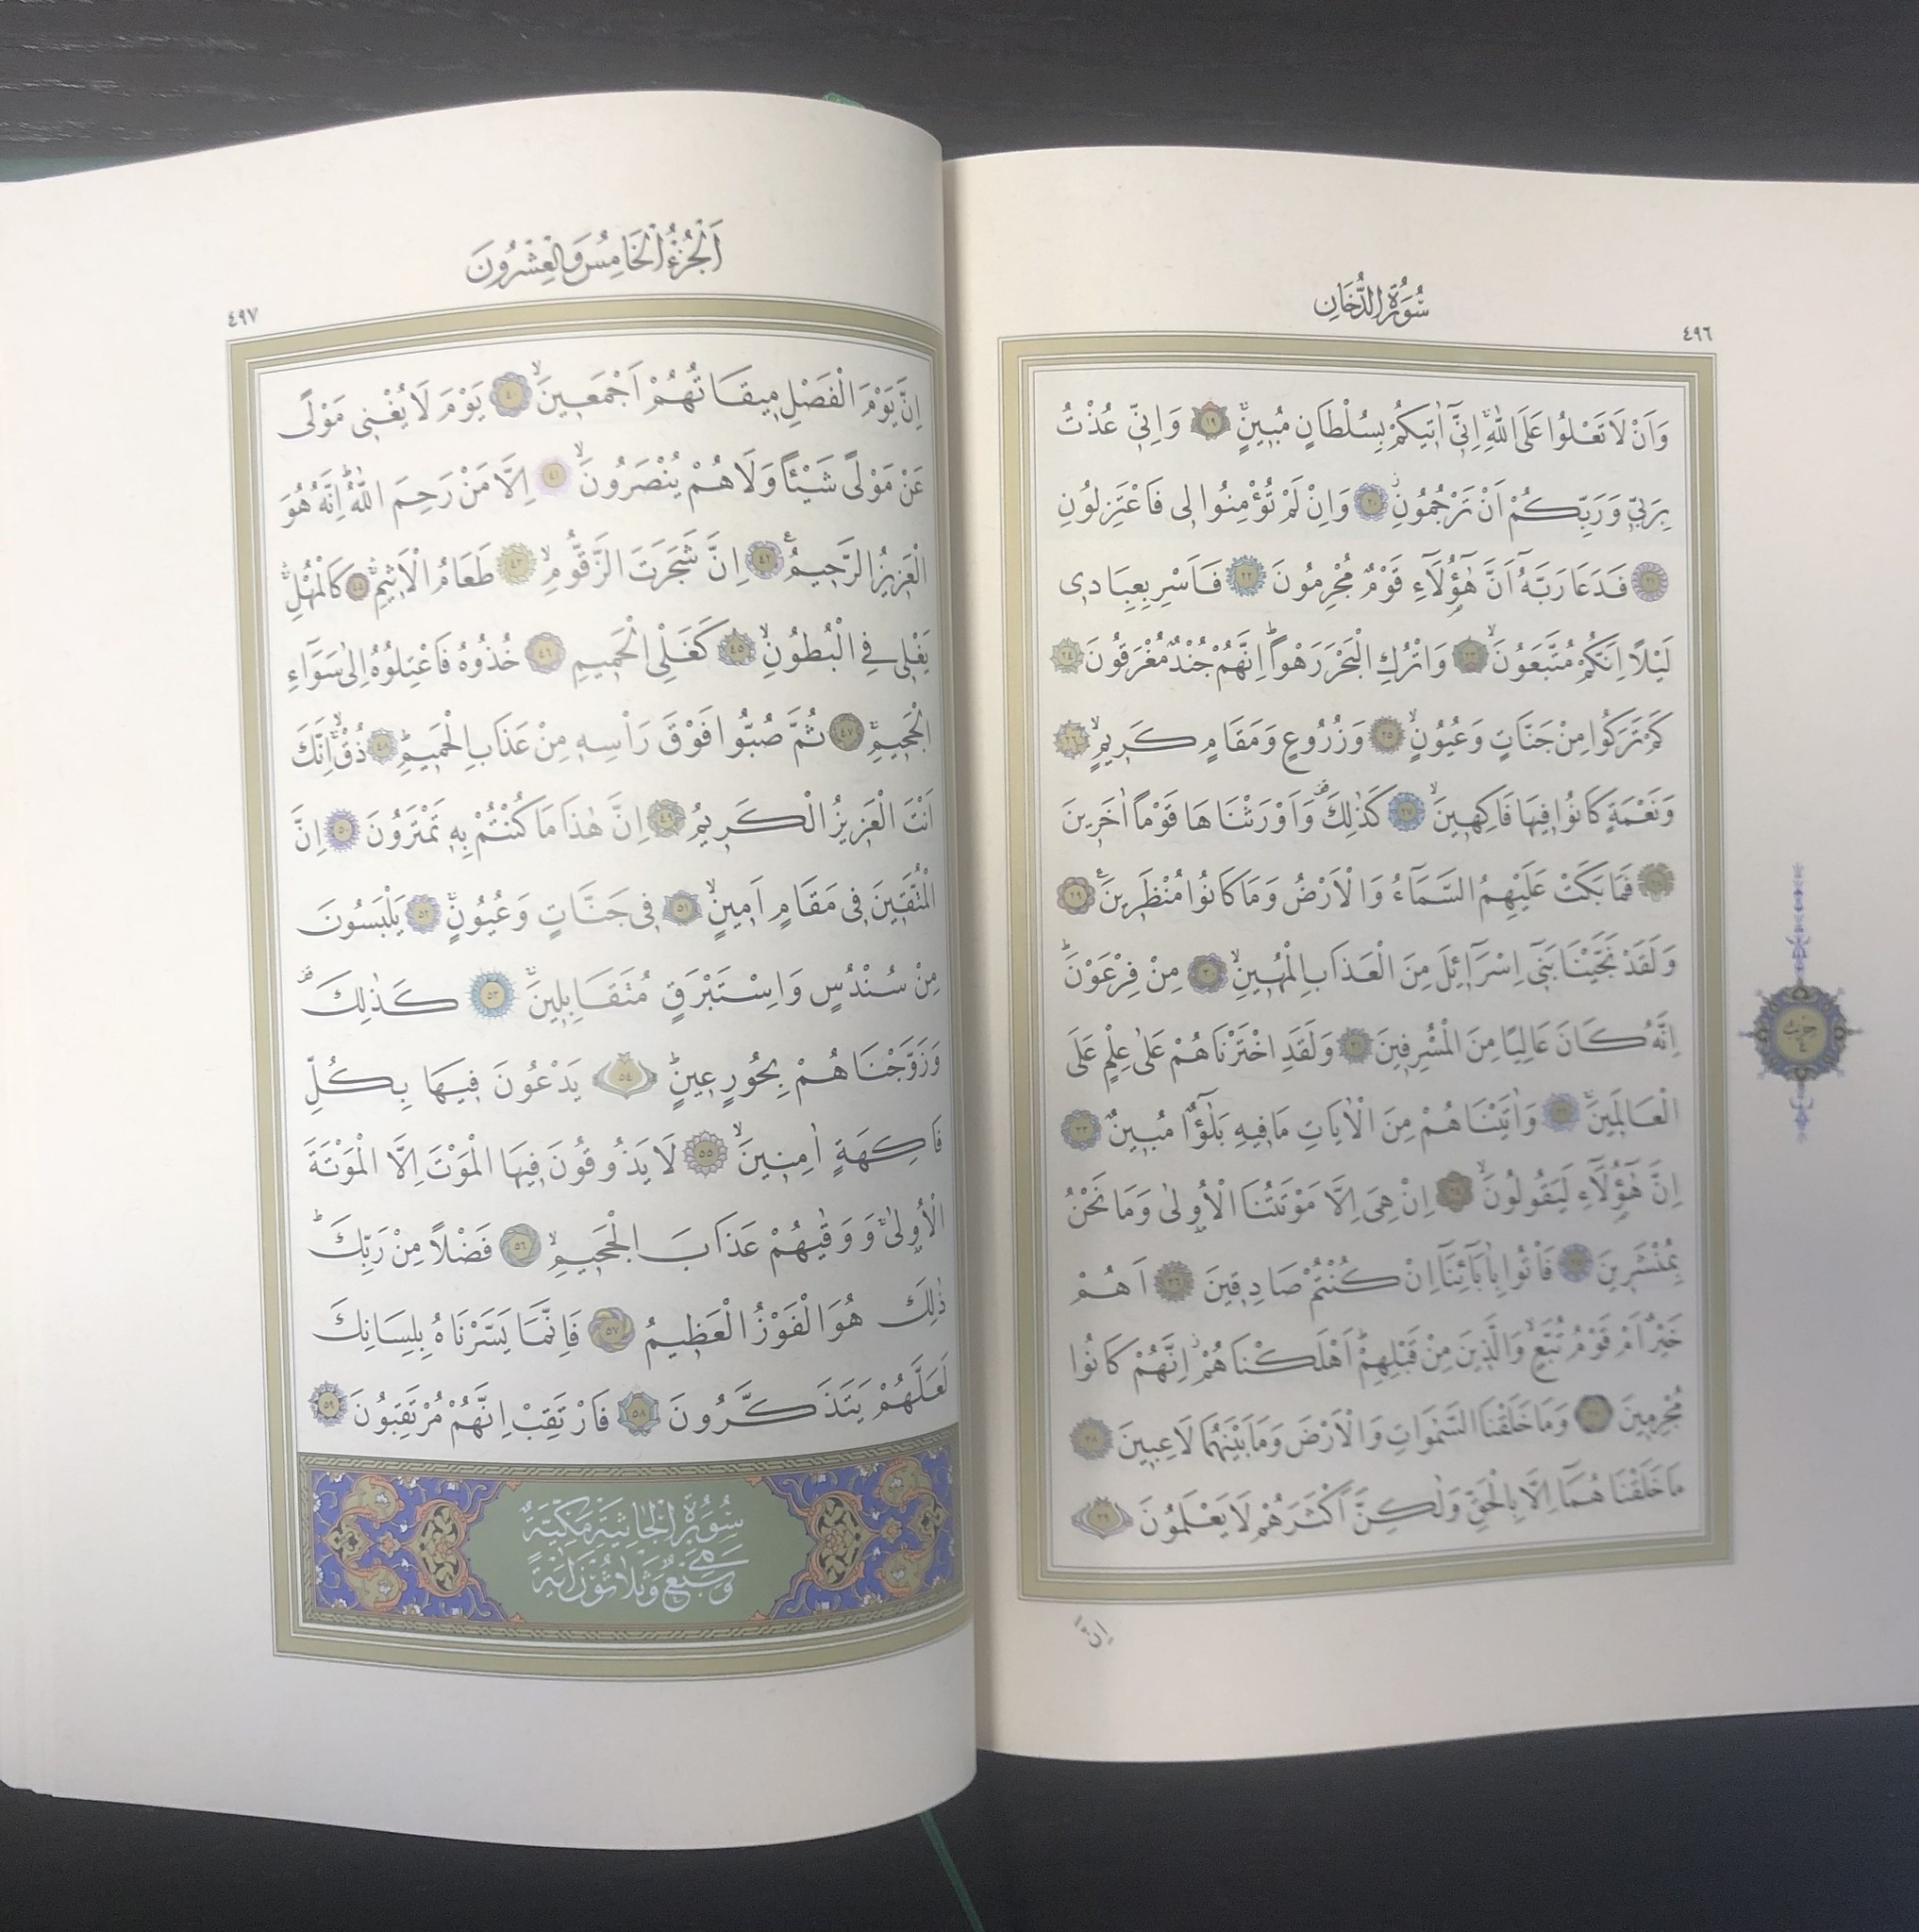 سُورَةُ الدُّخَانِ
٤٩٦
وَاَنْ لَا تَعْلُوا عَلَى اللّٰهِۚ اِنّ۪ٓي اٰت۪يكُمْ بِسُلْطَانٍ مُب۪ينٍۚ ١٩ وَاِنّ۪ي عُذْتُ
بِرَبّ۪ي وَرَبِّكُمْ اَنْ تَرْجُمُونِۘ ٢٠ وَاِنْ لَمْ تُؤْمِنُوا ل۪ي فَاعْتَزِلُونِ
٢١ فَدَعَا رَبَّهُٓ اَنَّ هٰٓؤُ۬لَٓاءِ قَوْمٌ مُجْرِمُونَ ٢٢ فَاَسْرِ بِعِبَاد۪ي
لَيْلًا اِنَّكُمْ مُتَّبَعُونَۙ ٢٣ وَاتْرُكِ الْبَحْرَ رَهْوًاۜ اِنَّهُمْ جُنْدٌ مُغْرَقُونَ ٢٤
كَمْ تَرَكُوا مِنْ جَنَّاتٍ وَعُيُونٍۙ ٢٥ وَزُرُوعٍ وَمَقَامٍ كَر۪يمٍۙ ٢٦
وَنَعْمَةٍ كَانُوا ف۪يهَا فَاكِه۪ينَۙ ٢٧ كَذٰلِكَ۠ وَاَوْرَثْنَاهَا قَوْمًا اٰخَر۪ينَ
٢٨ فَمَا بَكَتْ عَلَيْهِمُ السَّمَٓاءُ وَالْاَرْضُ وَمَا كَانُوا مُنْظَر۪ينَ۟ ٢٩
وَلَقَدْ نَجَّيْنَا بَن۪ٓي اِسْرَٓاء۪يلَ مِنَ الْعَذَابِ الْمُه۪ينِۙ ٣٠ مِنْ فِرْعَوْنَۜ
اِنَّهُ كَانَ عَالِيًا مِنَ الْمُسْرِف۪ينَ ٣١ وَلَقَدِ اخْتَرْنَاهُمْ عَلٰى عِلْمٍ عَلَى
الْعَالَم۪ينَۚ ٣٢ وَاٰتَيْنَاهُمْ مِنَ الْاٰيَاتِ مَا ف۪يهِ بَلٰٓؤٌ۬ا مُب۪ينٌ ٣٣
اِنَّ هٰٓؤُ۬لَٓاءِ لَيَقُولُونَۙ ٣٤ اِنْ هِيَ اِلَّا مَوْتَتُنَا الْاُو۫لٰى وَمَا نَحْنُ
بِمُنْشَر۪ينَ ٣٥ فَأْتُوا بِاٰبَٓائِنَٓا اِنْ كُنْتُمْ صَادِق۪ينَ ٣٦ اَهُمْ
خَيْرٌ اَمْ قَوْمُ تُبَّعٍۙ وَالَّذ۪ينَ مِنْ قَبْلِهِمْۜ اَهْلَكْنَاهُمْۘ اِنَّهُمْ كَانُوا
مُجْرِم۪ينَ ٣٧ وَمَا خَلَقْنَا السَّمٰوَاتِ وَالْاَرْضَ وَمَا بَيْنَهُمَا لَاعِب۪ينَ ٣٨
مَا خَلَقْنَاهُمَٓا اِلَّا بِالْحَقِّ وَلٰكِنَّ اَكْثَرَهُمْ لَا يَعْلَمُونَ ٣٩
اِنَّ
حزب
٤
اَلْجُزْءُ الْخَامِسُ وَالْعِشْرُونَ
٤٩٧
اِنَّ يَوْمَ الْفَصْلِ م۪يقَاتُهُمْ اَجْمَع۪ينَۙ ٤٠ يَوْمَ لَا يُغْن۪ي مَوْلًى
عَنْ مَوْلًى شَيْـًٔا وَلَا هُمْ يُنْصَرُونَۙ ٤١ اِلَّا مَنْ رَحِمَ اللّٰهُۜ اِنَّهُ هُوَ
الْعَز۪يزُ الرَّح۪يمُ۟ ٤٢ اِنَّ شَجَرَتَ الزَّقُّومِۙ ٤٣ طَعَامُ الْاَث۪يمِۚ ٤٤ كَالْمُهْلِۚ
يَغْل۪ي فِي الْبُطُونِۙ ٤٥ كَغَلْيِ الْحَم۪يمِ ٤٦ خُذُوهُ فَاعْتِلُوهُ اِلٰى سَوَٓاءِ
الْجَح۪يمِۗ ٤٧ ثُمَّ صُبُّوا فَوْقَ رَأْسِه۪ مِنْ عَذَابِ الْحَم۪يمِۜ ٤٨ ذُقْۙ اِنَّكَ
اَنْتَ الْعَز۪يزُ الْكَر۪يمُ ٤٩ اِنَّ هٰذَا مَا كُنْتُمْ بِه۪ تَمْتَرُونَ ٥٠ اِنَّ
الْمُتَّق۪ينَ ف۪ي مَقَامٍ اَم۪ينٍۙ ٥١ ف۪ي جَنَّاتٍ وَعُيُونٍۚ ٥٢ يَلْبَسُونَ
مِنْ سُنْدُسٍ وَاِسْتَبْرَقٍ مُتَقَابِل۪ينَۚ ٥٣ كَذٰلِكَ۠
وَزَوَّجْنَاهُمْ بِحُورٍ ع۪ينٍۜ ٥٤ يَدْعُونَ ف۪يهَا بِكُلِّ
فَاكِهَةٍ اٰمِن۪ينَۙ ٥٥ لَا يَذُوقُونَ ف۪يهَا الْمَوْتَ اِلَّا الْمَوْتَةَ
الْاُو۫لٰىۚ وَوَقٰيهُمْ عَذَابَ الْجَح۪يمِۙ ٥٦ فَضْلًا مِنْ رَبِّكَۜ
ذٰلِكَ هُوَ الْفَوْزُ الْعَظ۪يمُ ٥٧ فَاِنَّمَا يَسَّرْنَاهُ بِلِسَانِكَ
لَعَلَّهُمْ يَتَذَكَّرُونَ ٥٨ فَارْتَقِبْ اِنَّهُمْ مُرْتَقِبُونَ ٥٩
سُورَةُ الْجَاثِيَةِ مَكِّيَّةٌ
وَهِيَ سَبْعٌ وَثَلَاثُونَ اٰيَةً